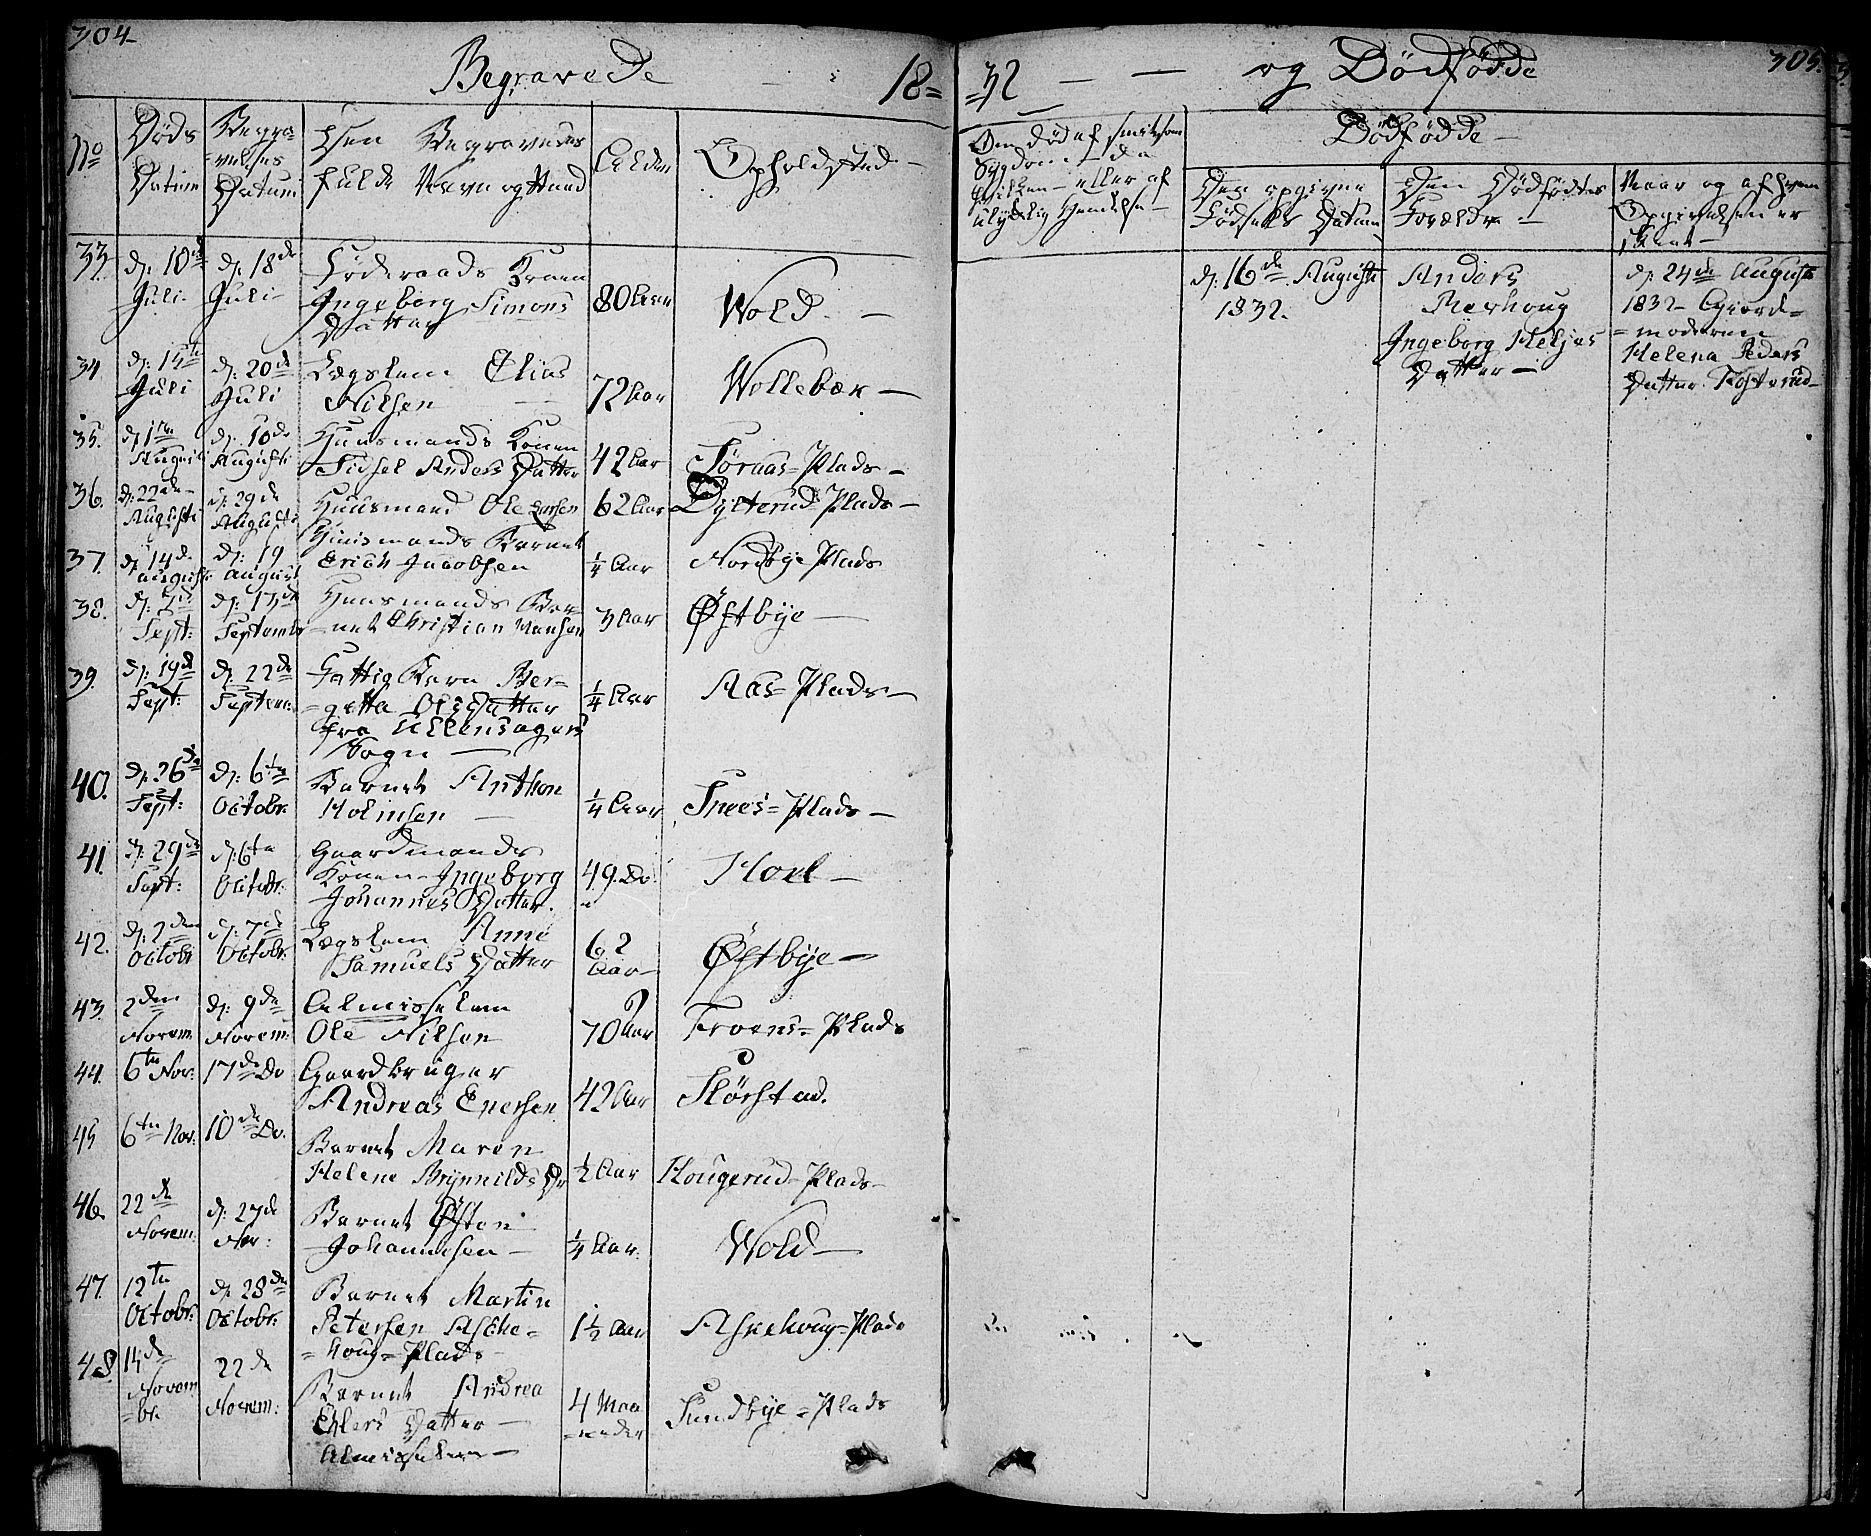 304
Begravede 18=
No
Døds Datum
Begra=velses Datum
Den Begravedes fulde Navn og Stand
Alder
Opholdsted
33. d: 10de Juli d: 18de Juli Føderaads Konen Ingeborg Simons Datter 80 Aar Wold
34 d: 15te Juli d: 20de Juli Lægslem Elias Nilsen 72 Aar Wollebæk
35. d: 1te Augusti d: 10de Augusti Huusmands Konen Sidsel Anders Datter 42 Aar Søraas=Plads
36. d: 22de Augusti d: 29de Augusti Huusmand Ole Larsen 62 Aar Dytterud=Plads
37. d: 14de Augusti d: 19 August Huusmands Barnet Erich Jacobsen 1/4 Aar Nordbye Plads
38. d: 7de Sept: d: 13de September Huusmands Bar=net Christian Hansen 3 Aar Østbye
39. d: 19de Sept: d: 22de Septem: Fattig Barn Ber=gitta Ols Datter fra Ullensagers Sogn 1/4 Aar Aas=Plads
40. d: 26de Sept: d: 6te Octobr. Barnet Anthon Holmsen 1/4 Aar Snees=Plads
41. d: 29de Sept: d: 6te Octobr: Gaardmands Konen Ingeborg Johannes Datter. 49. Do. Hoel
42. d: 2den Octobr d: 7de Octobr: Lægslem Anne Samuels Datter 62 Aar Østbye
43. 2den Novem: d: 9de Novem: Almisselem Ole Nilsen 70 Aar Froens=Plads
44. 6te Nov: 17de Do Gaardbruger Andreas Enersen 42 Aar Slørstad.
45 6te Nov: 10de Do. Barnet Maren Helene Brynnilds Dr 1/2 Aar Hougerud=Plads
46 22de Novem: d: 27de Nov: Barnet Østen Johannesen 1/4 Aar. Wold
47. 12te Octobr: d: 28de Octobr: Barnet Martin Petersen Asche=houg=Plads 1 1/2 Aar Askehoug=Plads
48. 14de Novem=br. 22de Novem: Barnet Andrea Ehlers Datter Almisselem 4 Maaneder Sundbye=Plads
=32 og Dødfødde 305.
Om død af smitsom Sygdom, da hvilken — eller af ulykkelig Hendelse
Dødfødde
Den opgivne Fødsels Datum
Den Dødfødtes Forældre
Naar og af hvem Opgivelsen er skeet
d: 16de Augusti 1832. Anders Aerhoug Ingeborg Heljes Datter d: 24de August 1832 Giord=moderen Helena Peders Datter Kosterud